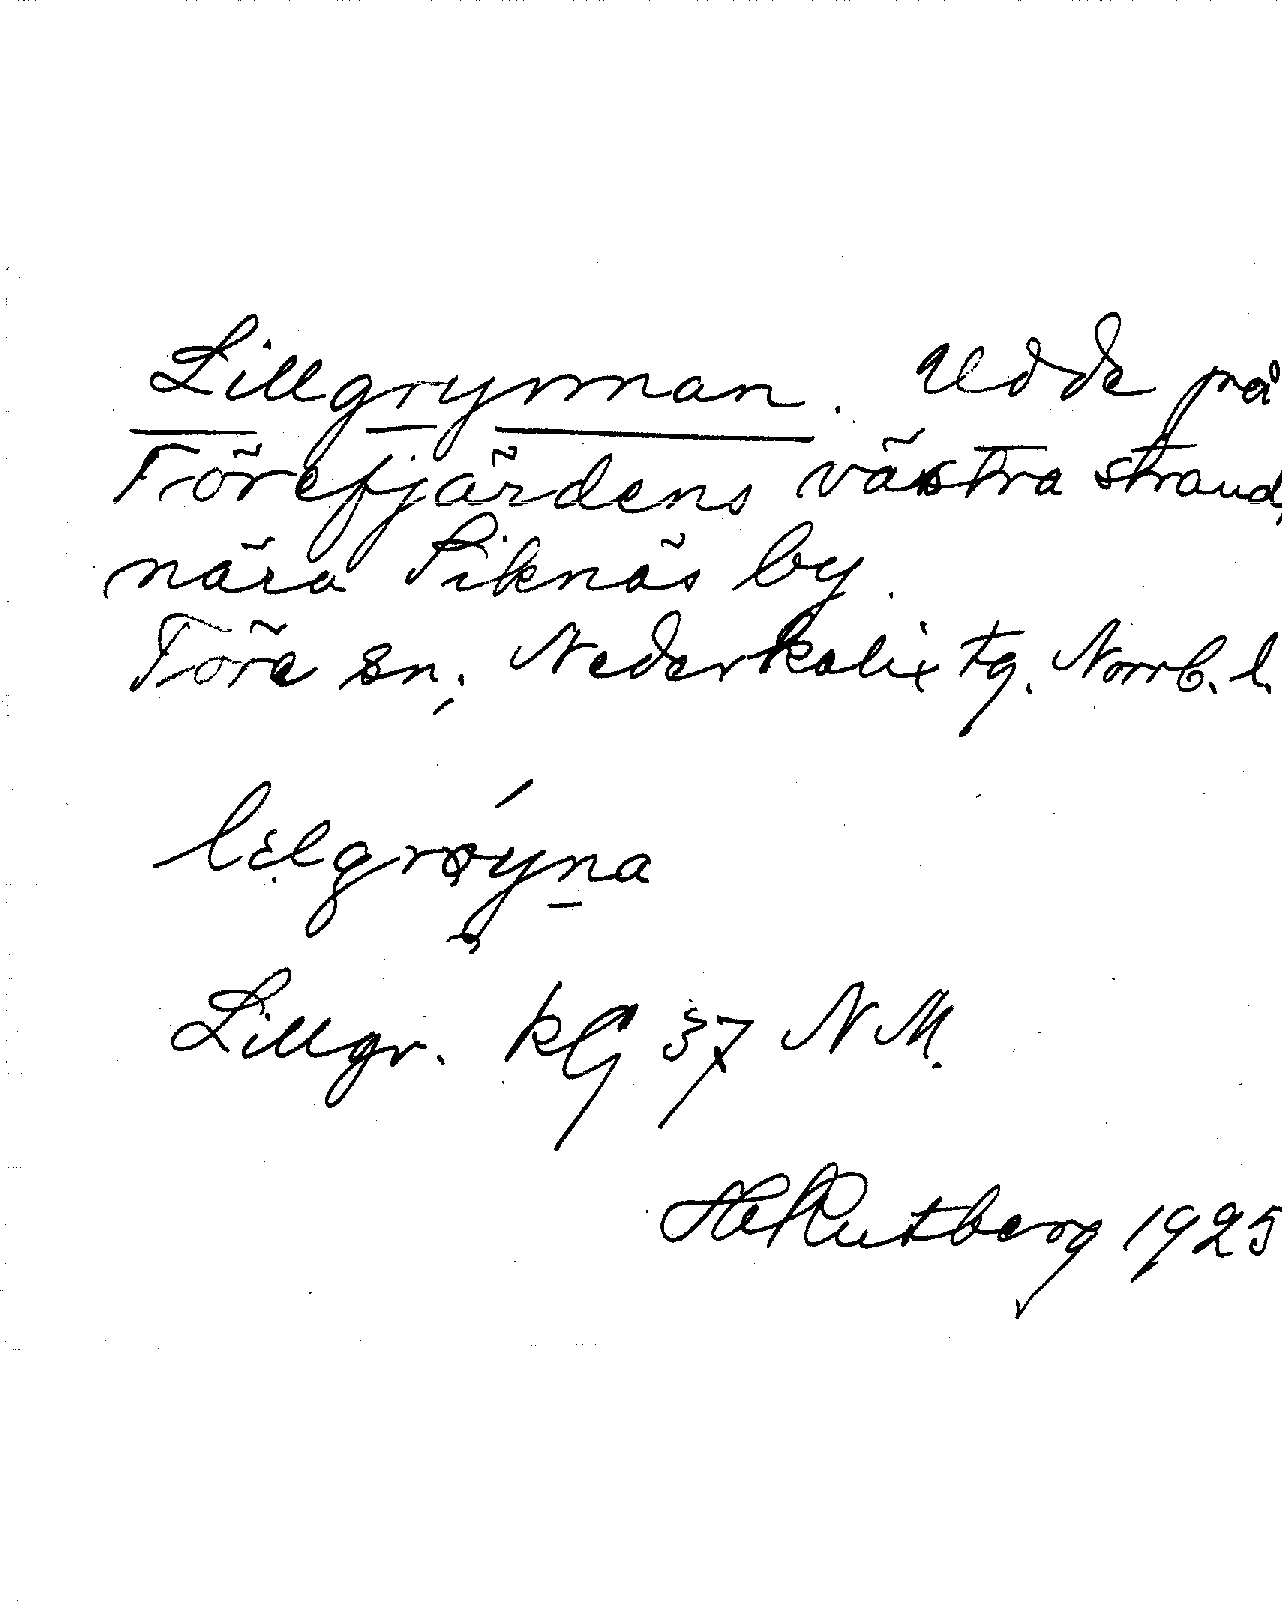 Lillgrynnan. Udde på
Törefjärdens västra strand,
nära Siknäs by.
Töre sn, Nederkalix tg. Norrb. l.
Lillgr. kG 37 N M.
H Rutberg 1925